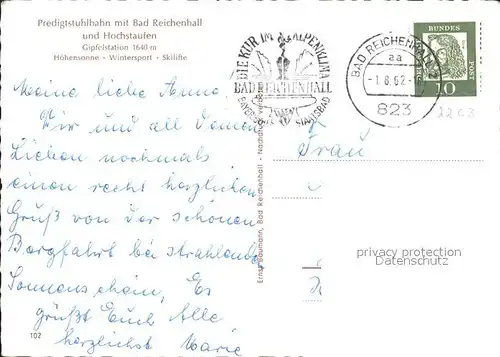 Predigtstuhlbahn mit Bad Reichenhall
und Hochstaufen
Gipfelstation 1640 m
Höhensonne - Wintersport - Skilifte
Meine liebe Anna
Dir und all Deinen
Lieben nochmals
einen recht herzlichen
Gruß von der schönen
Bergfahrt bei strahlendem
Sonnenschein, Es
grüßt Euch Alle
herzlichst Marie
102
Ernst Baumann, Bad Reichenhall - Nachdruck verboten
DIE KUR IM ALPENKLIMA
BAD REICHENHALL
STAATSBAD
BAD REICHENHALL
aa
-1.8.62.-
823
DEUTSCHE BUNDESPOST
10
Frau
privacy protection
Datenschutz